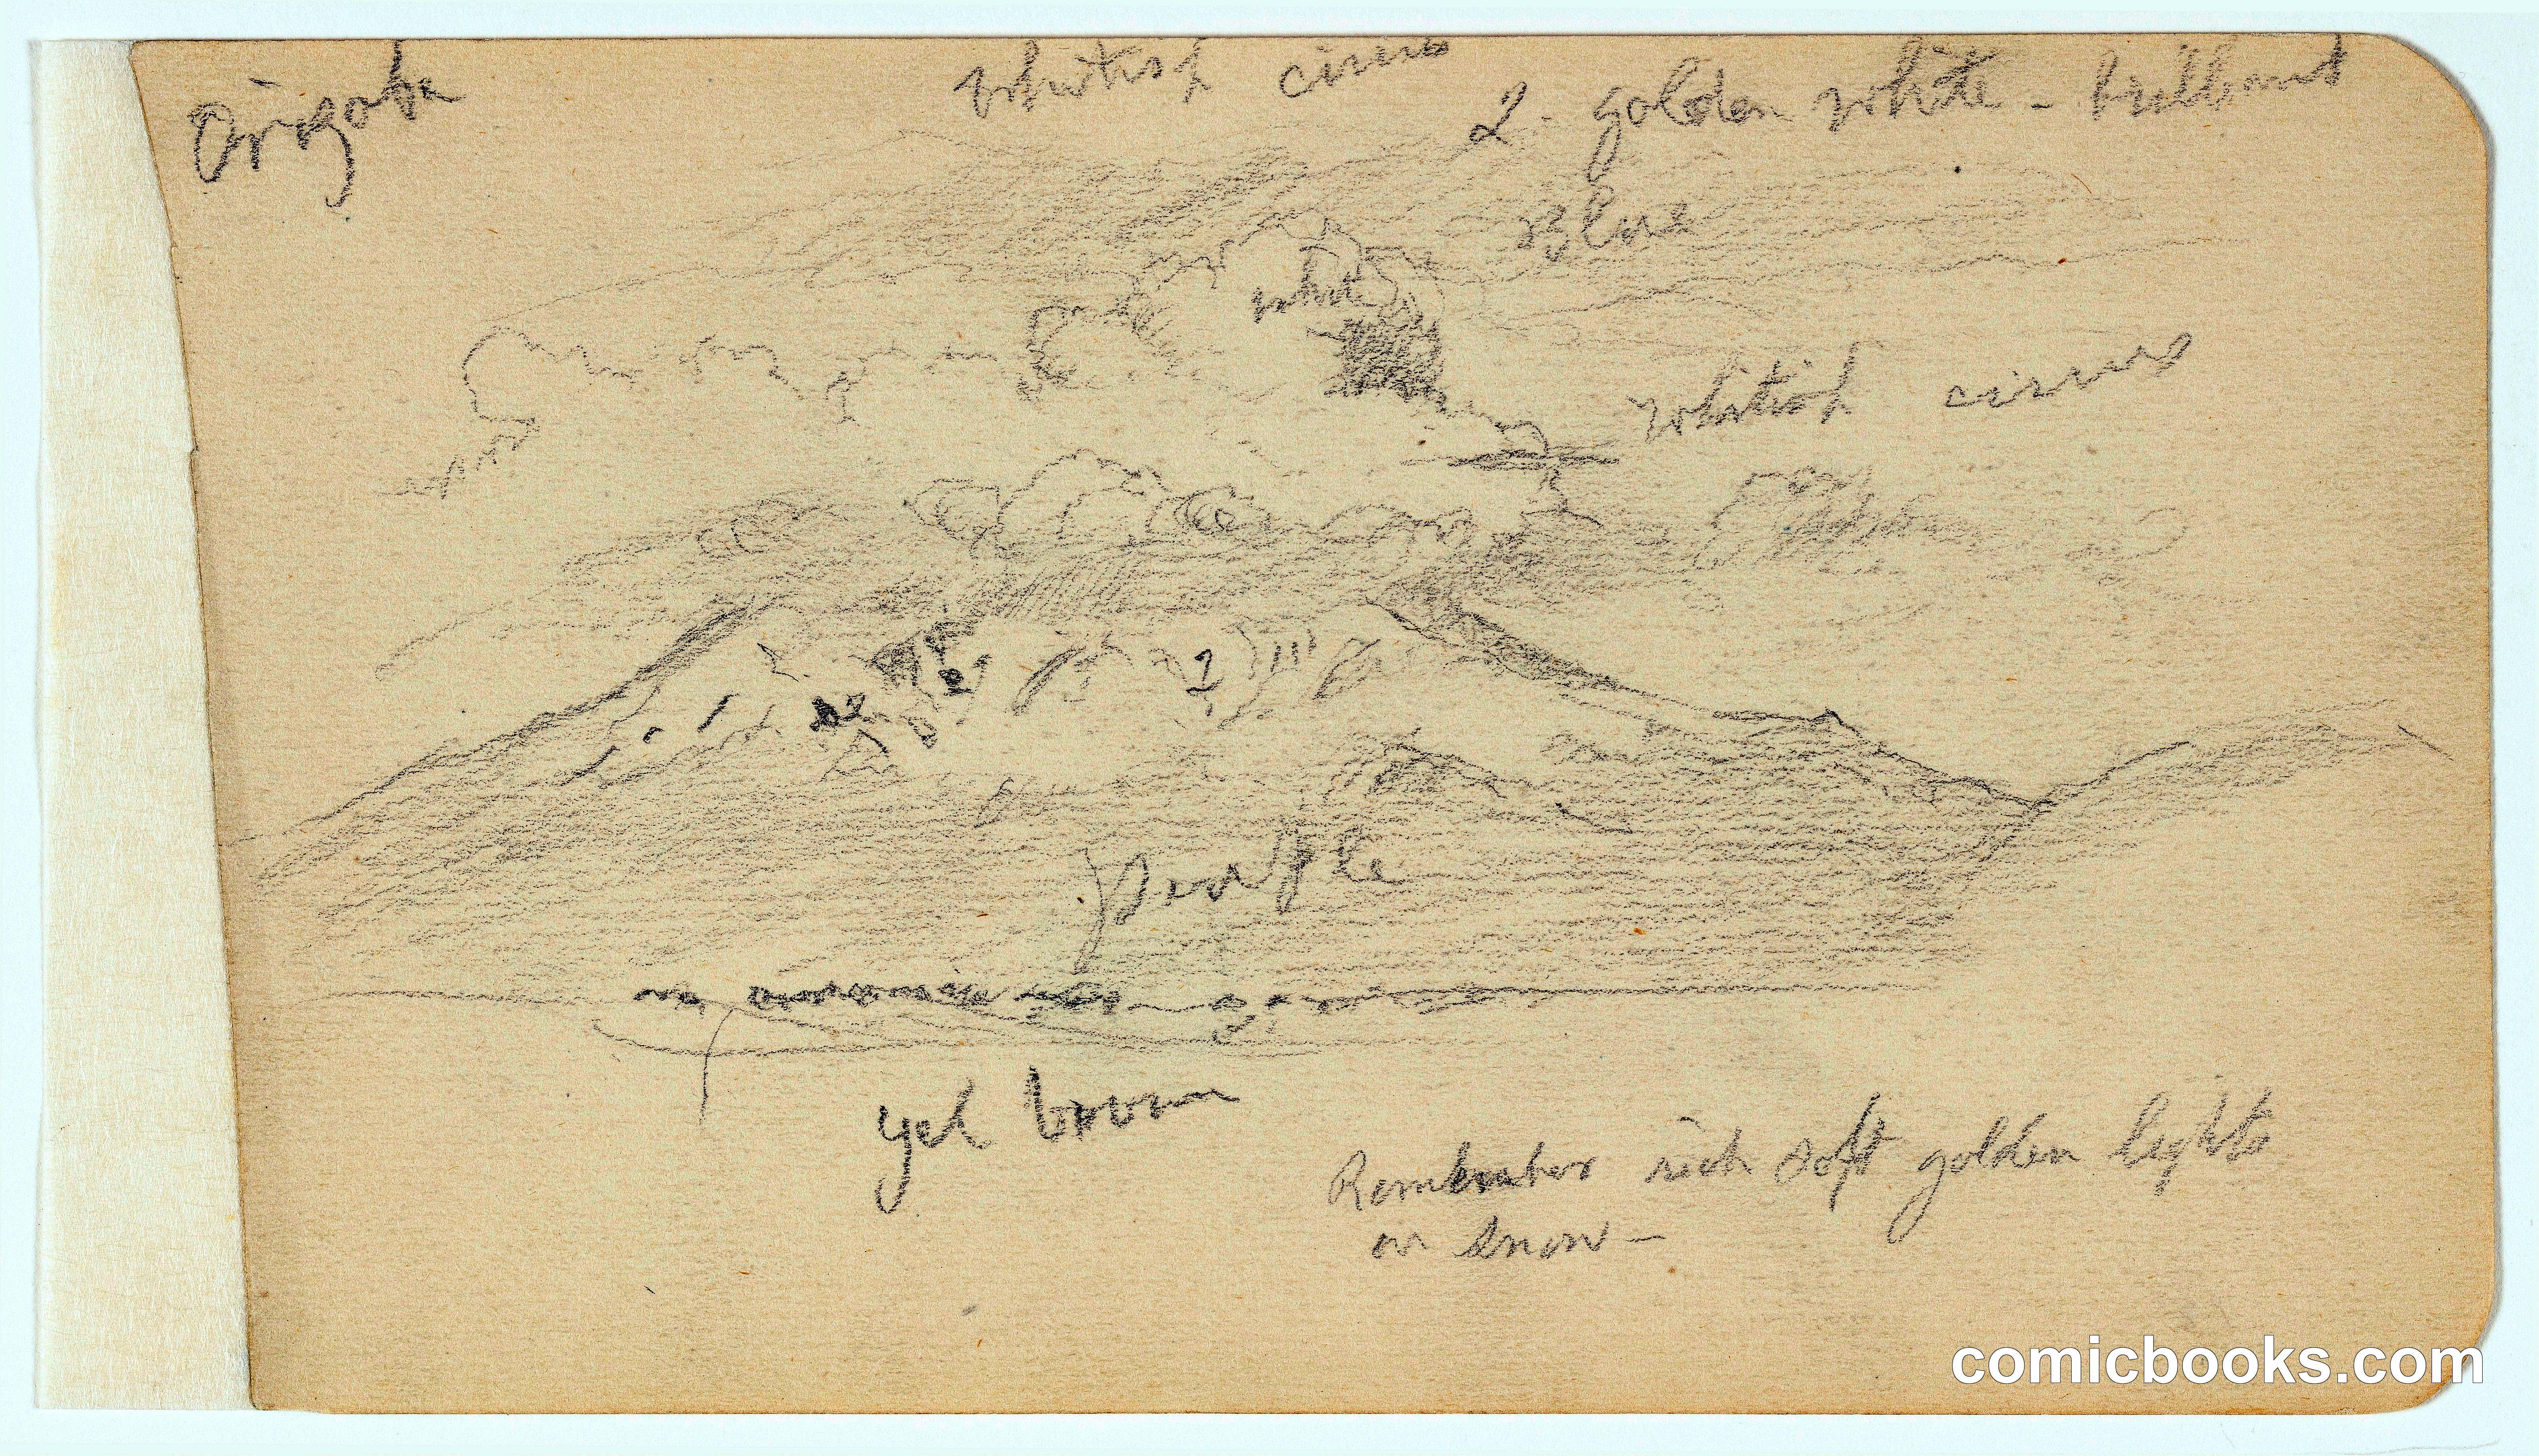 Orizaba
whitish cirrus
2 - golden white - brilliant
blue
white
whitish cirrus
2
2
2
purple
yel brown
Remember rich soft golden lights
on snow -
comicbooks.com